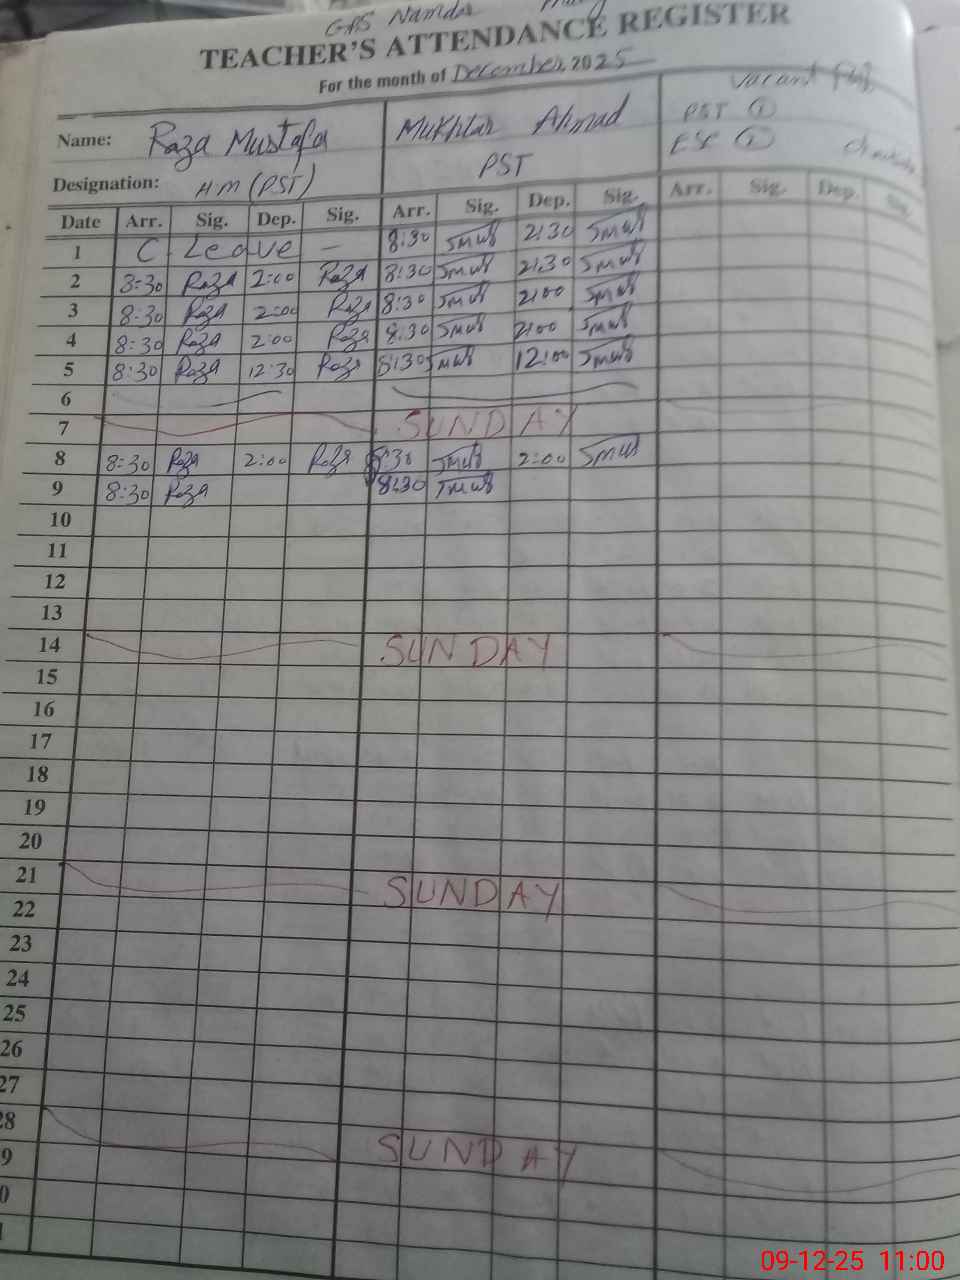 GPS Namdar
TEACHER'S ATTENDANCE REGISTER
For the month of December, 2025
Name: Raza Mustafa Mukhtar Ahmad Vacant
PST ①
Designation: HM (PST) PST
Date Arr. Sig. Dep. Sig. Arr. Sig. Dep. Sig. Arr. Sig. Dep. Sig.
1 C Leave — 8:30 2:30
2 8:30 Raza 2:00 Raza 8:30 2:30
3 8:30 Raza 2:00 Raza 8:30 2:00
4 8:30 Raza 2:00 Raza 8:30 2:00
5 8:30 Raza 12:30 Raza 8:30 12:00
6
7 SUNDAY
8 8:30 Raza 2:00 Raza 8:30 2:00
9 8:30 Raza 8:30
10
11
12
13
14 SUNDAY
15
16
17
18
19
20
21 SUNDAY
22
23
24
25
26
27
28 SUNDAY
9
0
1
09-12-25 11:00